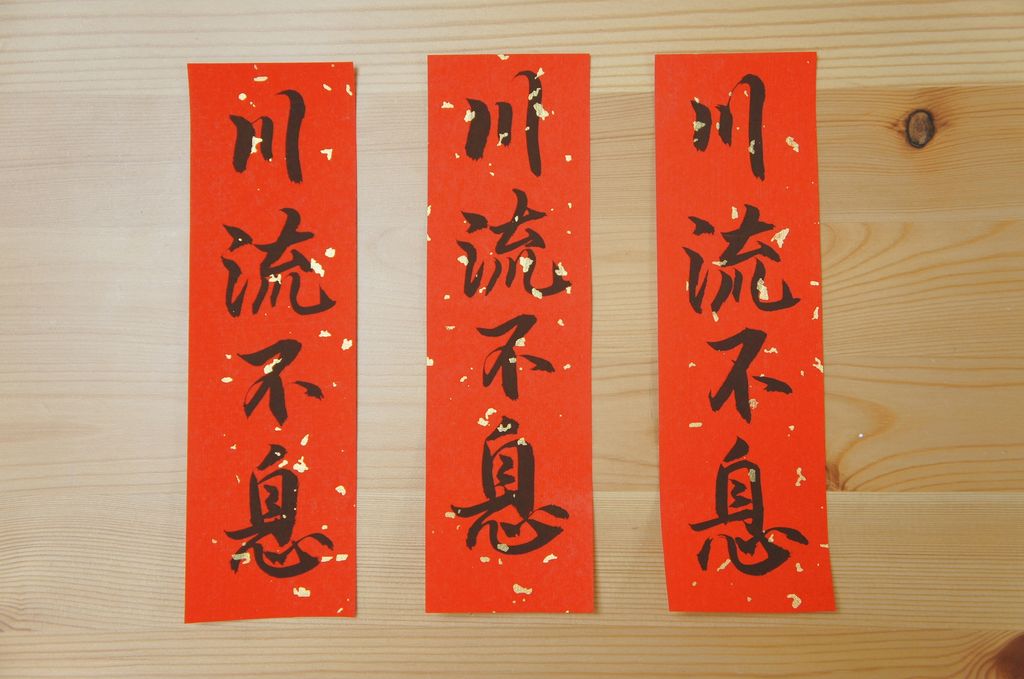 川流不息
川流不息
川流不息